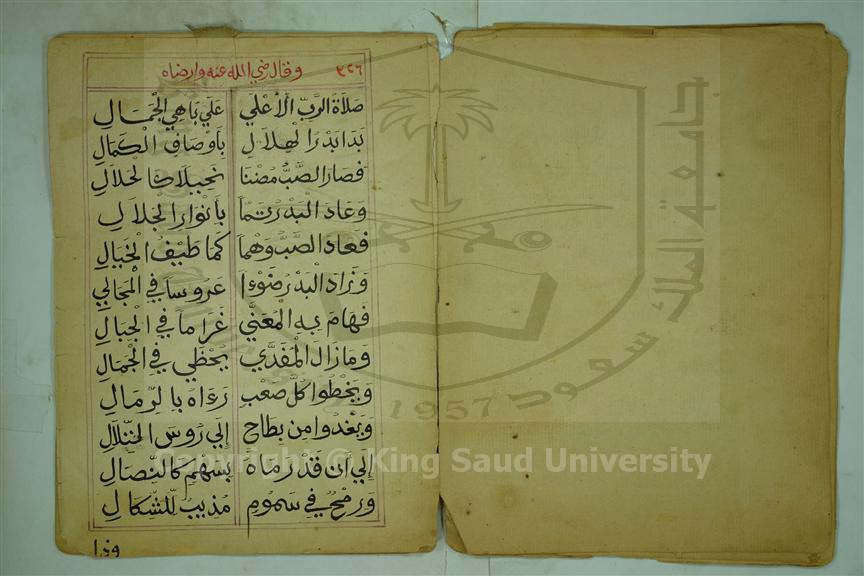 ٣٢٦ وقال رضي الله عنه وارضاه
صَلَاةُ الرَّبِّ الْأَعْلَي عَلَي بَاهِي الْجَمَالِ
بَدَا بَدْرَا لْهِلَالِ بِأَوْصَافِ الْكَمَالِ
فَصَارَ الصَّبُّ مُضْنَا نَحِيلًا كَالْخِلَالِ
وَعَادَ الْبَدْرُ تَمًّا بِأَنْوَارِ الْجَلَالِ
فَعَادَ الصَّبُّ وَهْمًا كَمَا طَيْفُ الْخَيَالِ
وَزَادَ الْبَدْرُ ضَوْءًا عَرُوسًا فِي الْمَجَالِي
فَهَامَ بِهِ الْمُعَنَّي غَرَامًا فِي الْجِبَالِ
وَمَازَالَ الْمُفَدَّي يَحْظَي فِي الْجَمَالِ
وَيَخْطُوا كُلَّ صَعْبٍ رَءَاهُ بِالرِّمَالِ
وَيَغْدُوا مِنْ بِطَاحِ إِلَي رُوسِ التِّلَالِ
إِلَي أَنْ قَدْ رَمَاهُ بِسَهْمٍ كَالنِّصَالِ
وَرُمْحٍ فِي سَمُومٍ مُذِيبٌ لِلشِّكَالِ
جامعة الملك سعود
1957
Copyright © King Saud University